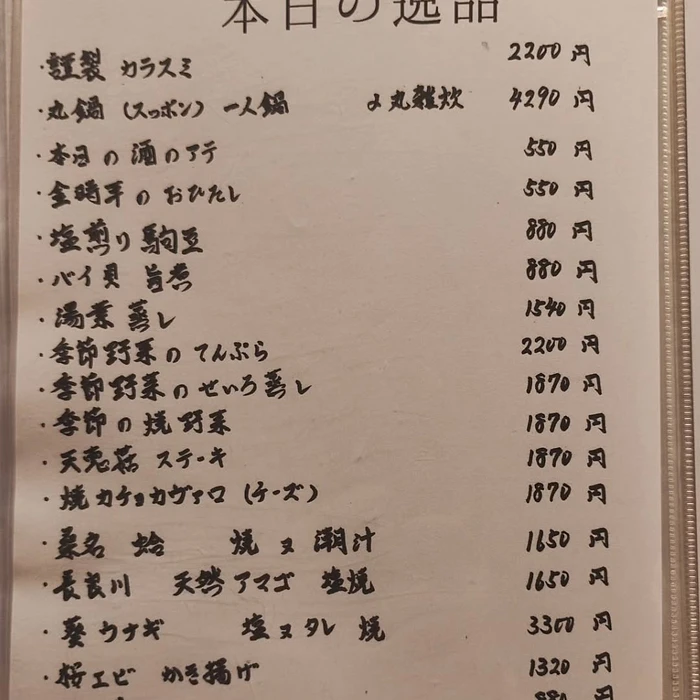 本日の逸品
・謹製 カラスミ 2200円
・丸鍋 (スッポン) 一人鍋 丸雑炊 4290円
・本日の酒のアテ 550円
・金時草のおひたし 550円
・塩煎り 駒豆 880円
・バイ貝 旨煮 880円
・湯葉蒸し 1540円
・季節野菜のてんぷら 2200円
・季節野菜のせいろ蒸し 1870円
・季節の焼野菜 1870円
・天恵菇 ステーキ 1870円
・焼カチョカヴァロ (チーズ) 1870円
・桑名 蛤 焼 ヌ 潮汁 1650円
・長良川 天然アマゴ 塩焼 1650円
・ウナギ 塩 ヌ タレ 焼 3300円
・桜エビ かき揚げ 1320円